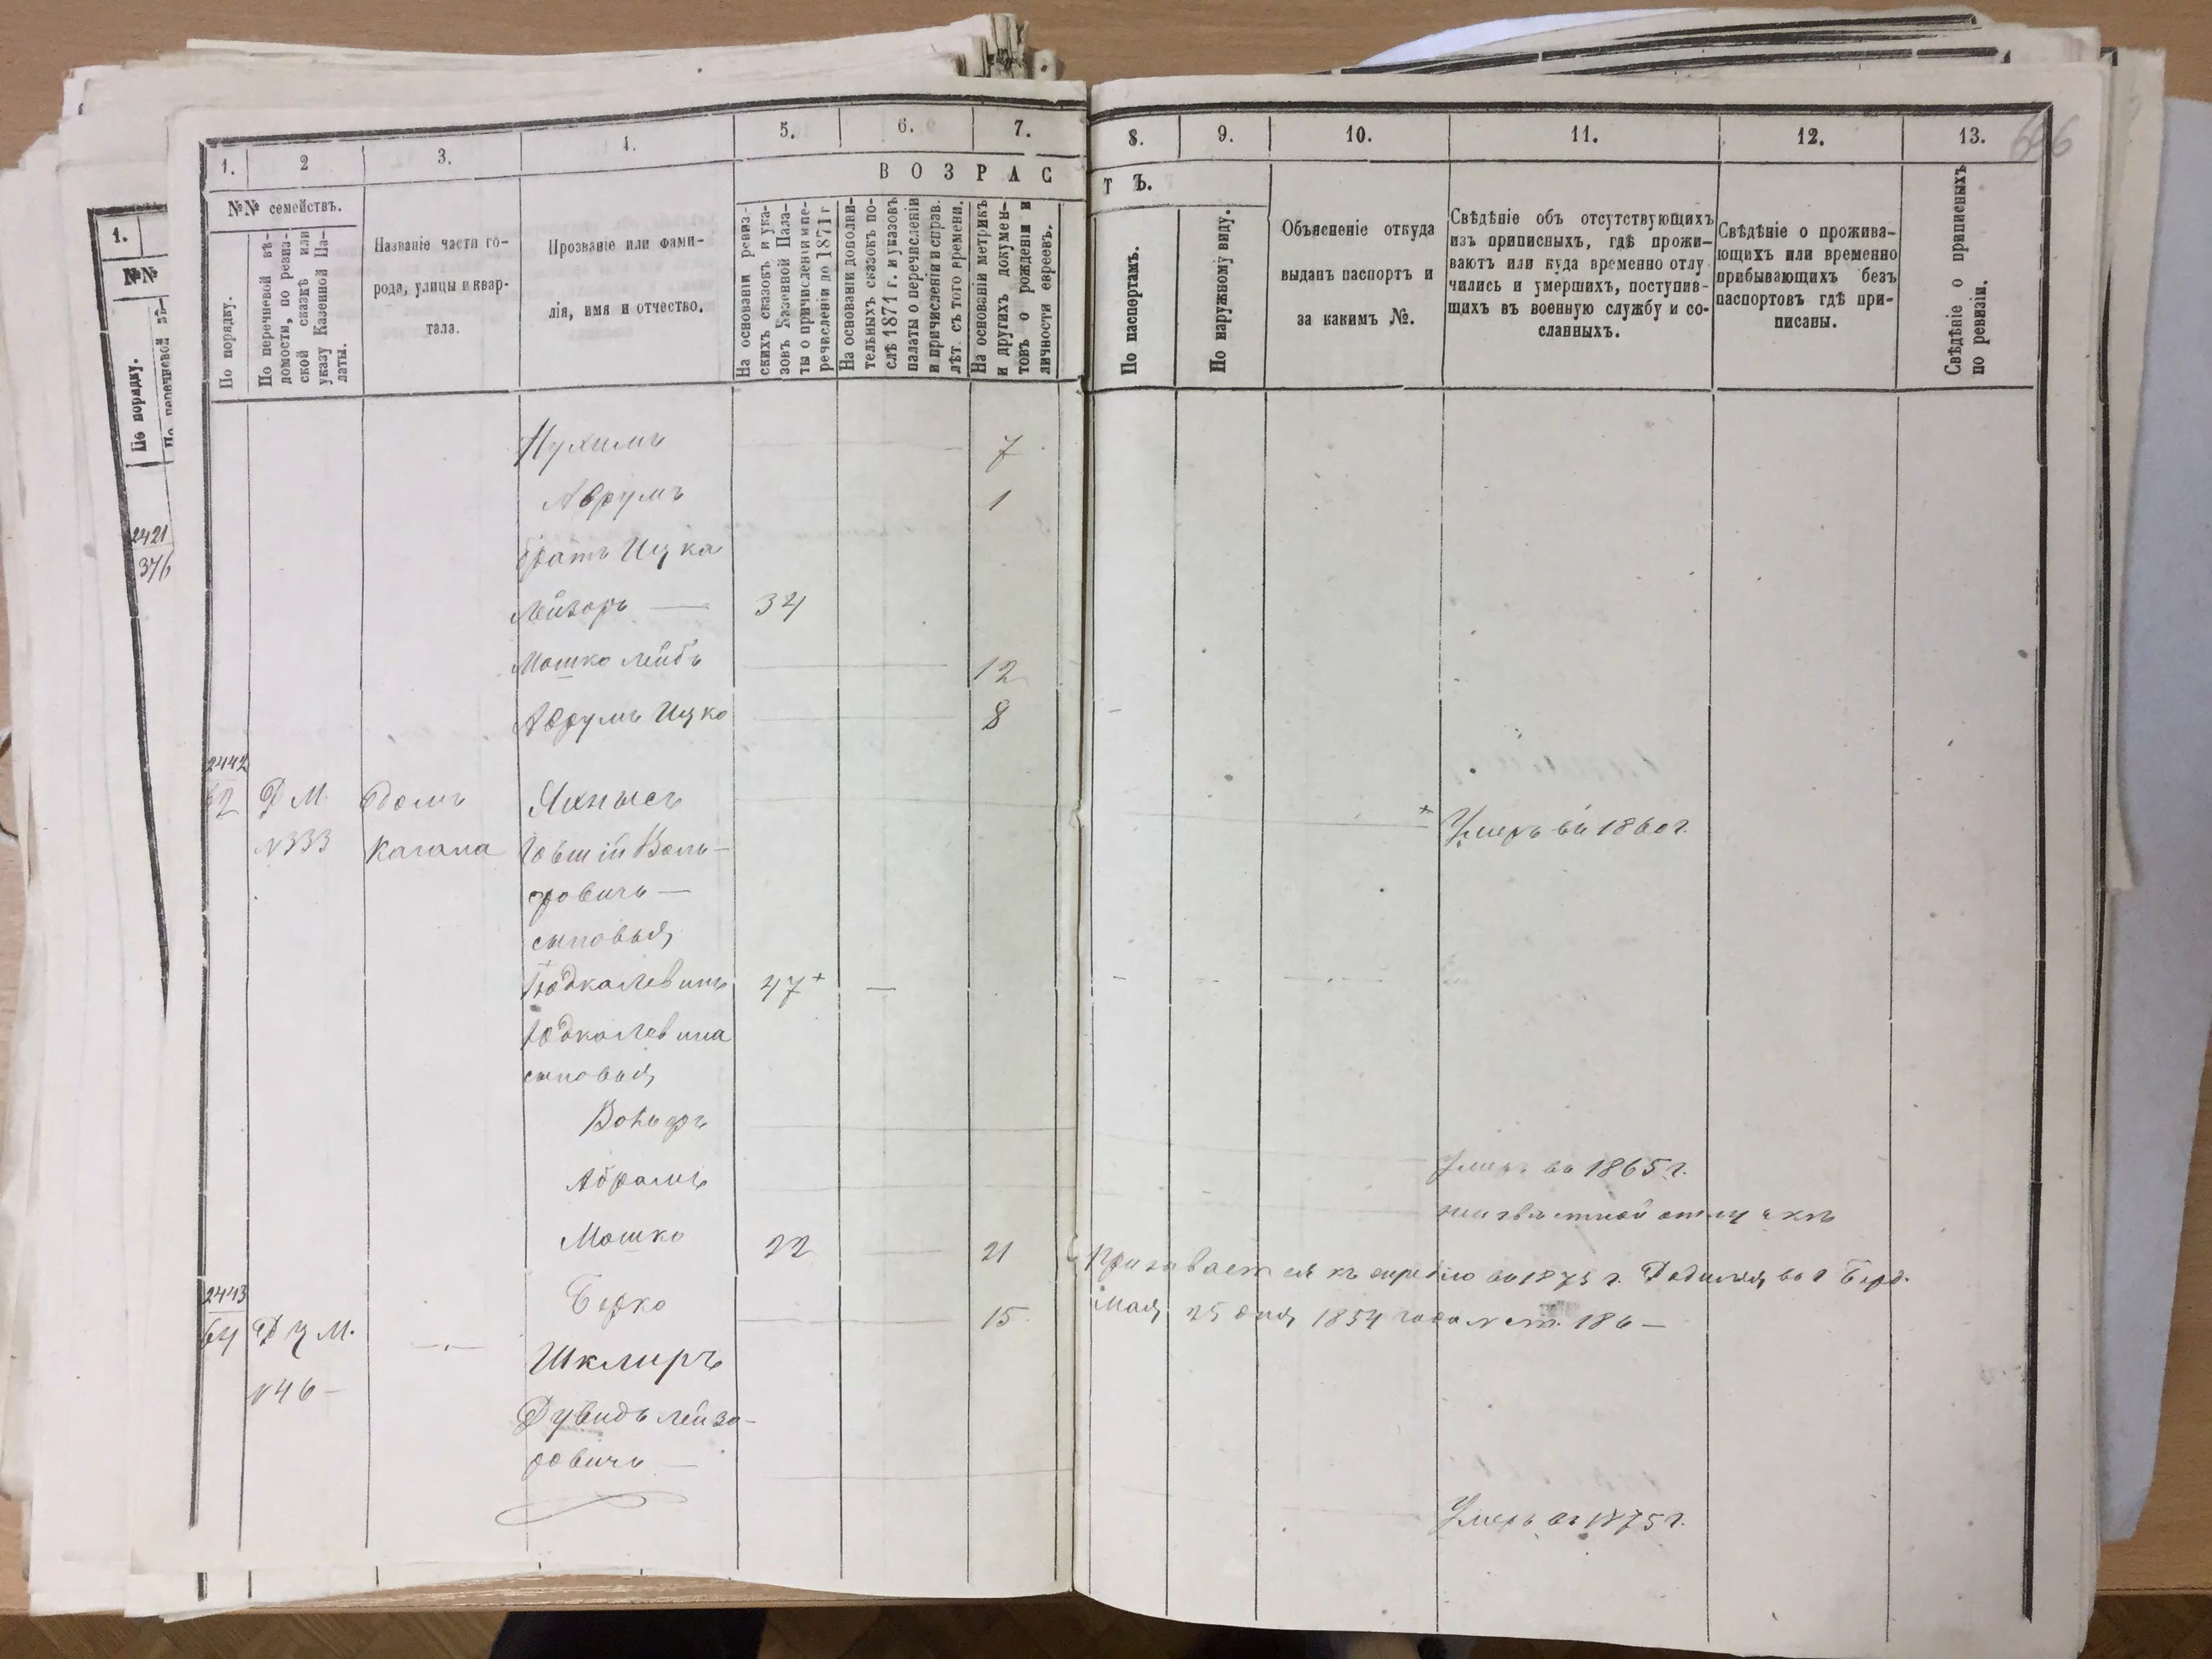 1.
2
3.
4.
5.
6.
7.
8.
9.
10.
11.
12.
13.
ВОЗРАС
Т Ъ.
№№ семействъ.
По порядку.
По перечневой вѣ-
домости, по ревиз-
ской сказкѣ или
указу Казенной Па-
латы.
Названіе части го-
рода, улицы и квар-
тала.
Прозваніе или фами-
лія, имя и отчество.
На основаніи ревиз-
скихъ сказокъ и ука-
зовъ Казенной Пала-
ты о причисленіи и пе-
речисленіи до 1871 г
На основаніи дополни-
тельныхъ сказокъ по-
слѣ 1871 г. и указовъ
палаты о перечисленіи
и причисленіи и справ.
лѣт. съ того времени.
На основаніи метрикъ
и другихъ докумен-
товъ о рожденіи и
личности евреевъ.
По паспортамъ.
По наружному виду.
Объясненіе откуда
выданъ паспортъ и
за какимъ №.
Свѣдѣніе объ отсутствующихъ
изъ приписныхъ, гдѣ прожи-
ваютъ или куда временно отлу
чились и умершихъ, поступив-
щихъ въ военную службу и со-
сланныхъ.
Свѣдѣніе о прожива-
ющихъ или временно
прибывающихъ безъ
паспортовъ гдѣ при-
писаны.
Свѣдѣніе о приписныхъ
по ревизіи.
1.
№№
По порядку.
2421
376
Нухимъ 7
Аврумъ 1
братъ Ицка
Лейзоръ — 34
Мошко Лейбъ 12
Аврумъ Ицко 8
2442
62 Д М. домъ
№333 Кагана Іовшій Воль-
Умеръ въ 1860 г.
фовичъ —
сыновья
Юдкалевинъ 47+ —
Юдкалевина
сыновья
Вольфъ
Умеръ въ 1865 г.
Абрамъ
неизвѣстной отлучкѣ
Мошко 22 21
Призывается къ жребію въ 1875 г. Родился въ г Берд.
2443
Берко 15
Мая 25 дня 1854 года № ст. 186 —
64 Д Ч М. Шклиръ
№46 —
Дувидъ Лейзо-
ровичъ —
Умеръ въ 1875 г.